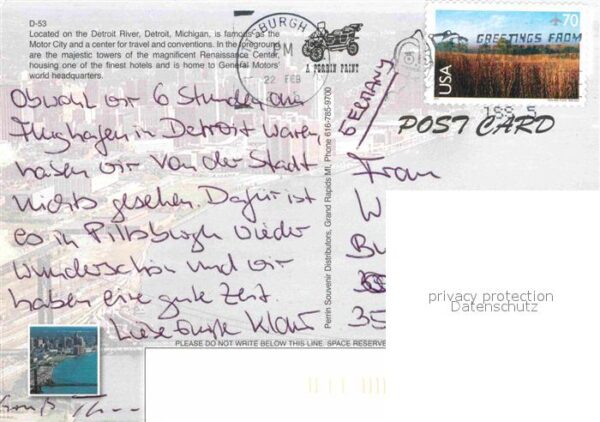 D-53
Located on the Detroit River, Detroit, Michigan, is famous as the
Motor City and a center for travel and conventions. In the foreground
are the majestic towers of the magnificent Renaissance Center,
housing one of the finest hotels and is home to General Motors'
world headquarters.
BURGH
PM
22 FEB
A PERRIN PRINT
70
GREETINGS FROM
USA
POST CARD
GERMANY
Obwohl wir 6 Stunden am
Flughafen in Detroit waren,
haben wir von der Stadt
nichts gesehen. Dafür ist
es in Pittsburgh wieder
wunderschön und wir
haben eine gute Zeit.
Liebe Grüße Klaus
Gruß
Frau
W
Bu
35
Perrin Souvenir Distributors, Grand Rapids MI, Phone 616-785-9700
PLEASE DO NOT WRITE BELOW THIS LINE. SPACE RESERVE
privacy protection
Datenschutz